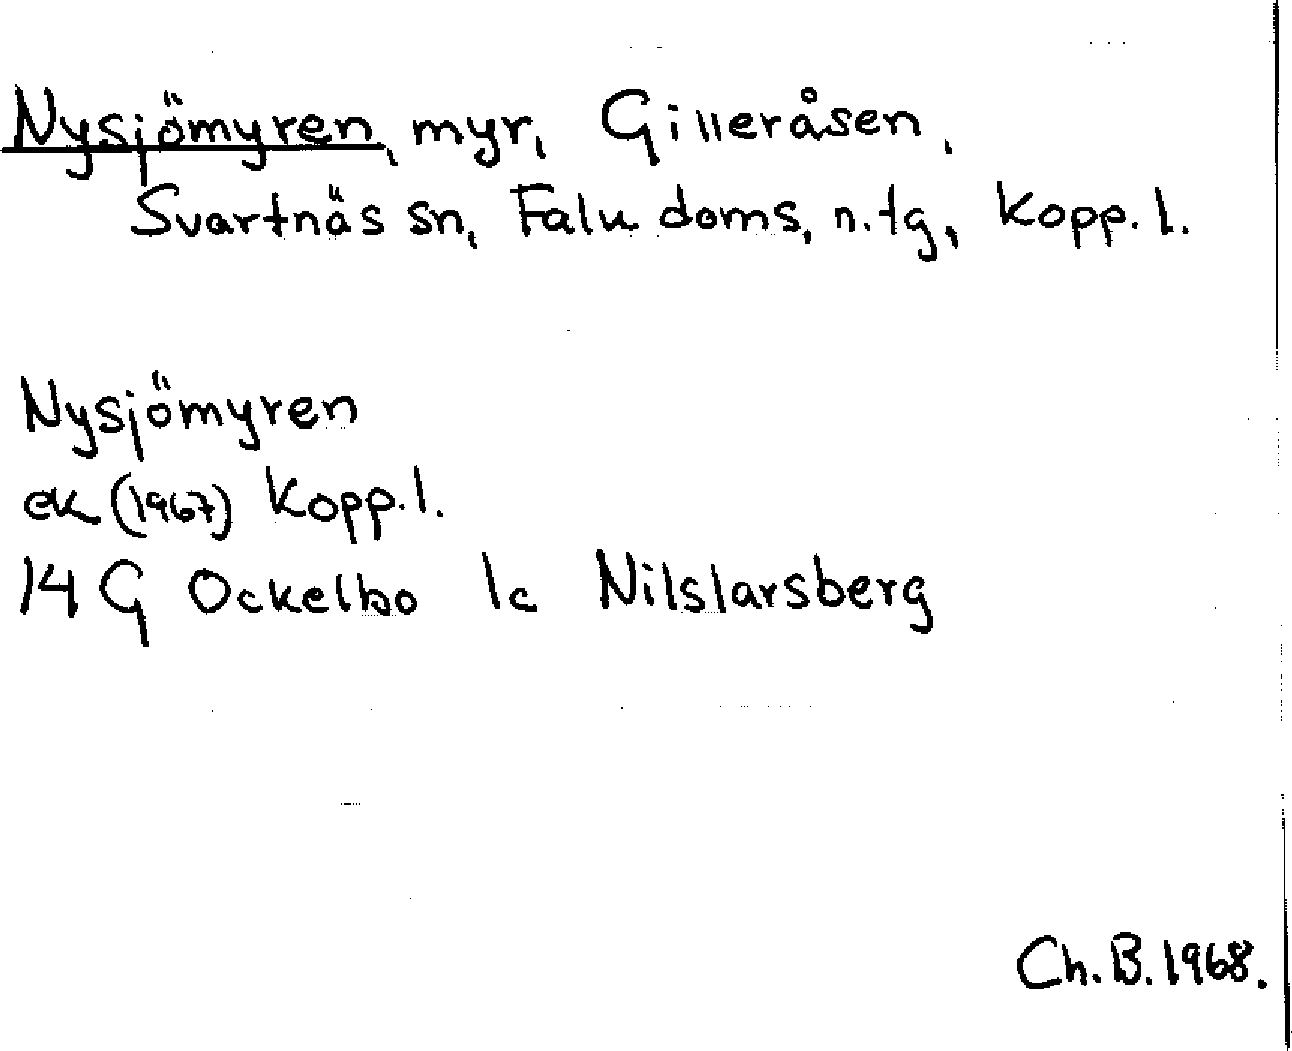 Nysjömyren, myr, Gilleråsen,
Svartnäs sn, Falu doms, n. tg, Kopp. l.
Nysjömyren
ek (1967) Kopp. l.
14 G Ockelbo 1c Nilslarsberg
Ch. B. 1968.